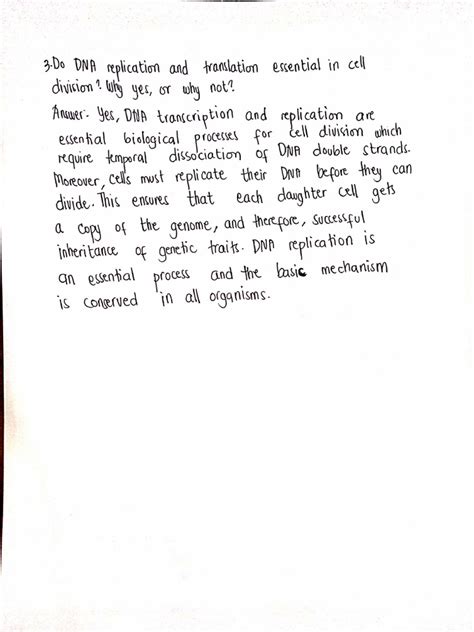 3. Do DNA replication and translation essential in cell
division? Why yes, or why not?
Answer: Yes, DNA transcription and replication are
essential biological processes for cell division which
require temporal dissociation of DNA double strands.
Moreover, cells must replicate their DNA before they can
divide. This ensures that each daughter cell gets
a copy of the genome, and therefore, successful
inheritance of genetic traits. DNA replication is
an essential process and the basic mechanism
is conserved in all organisms.